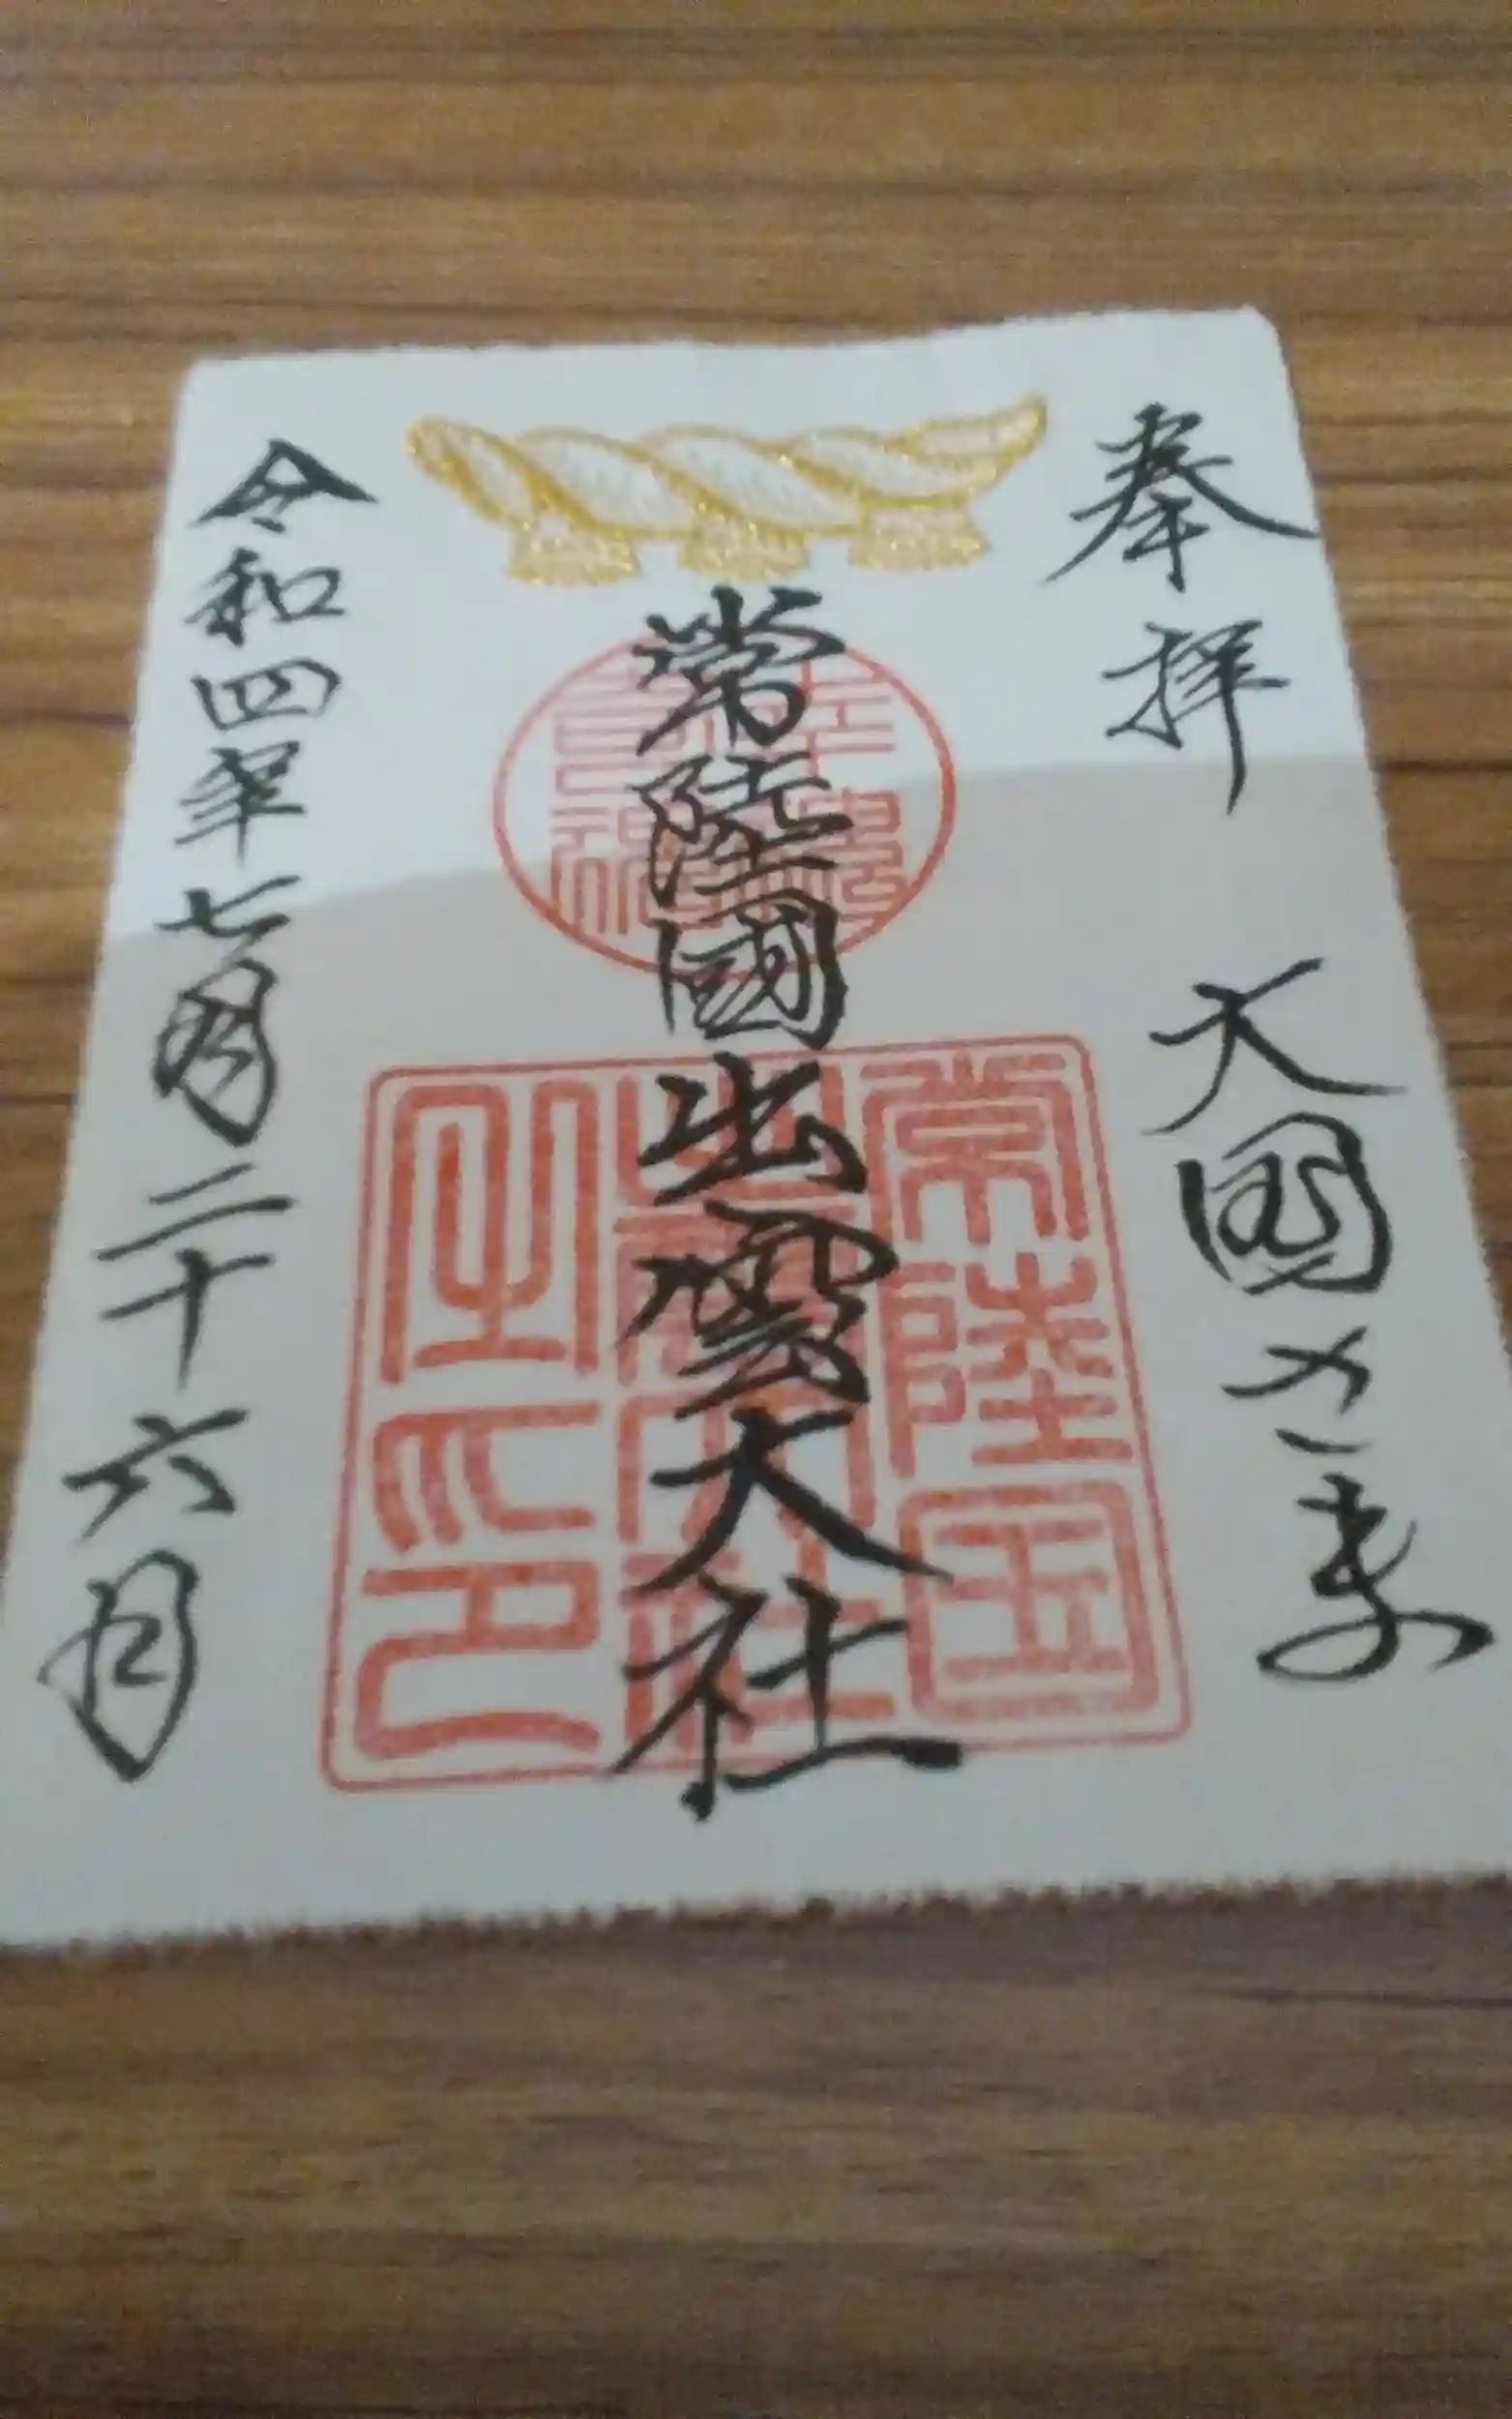 奉拝 大國さま
常陸國出雲大社
常陸国
出雲大社
之印
令和四年七月二十六日